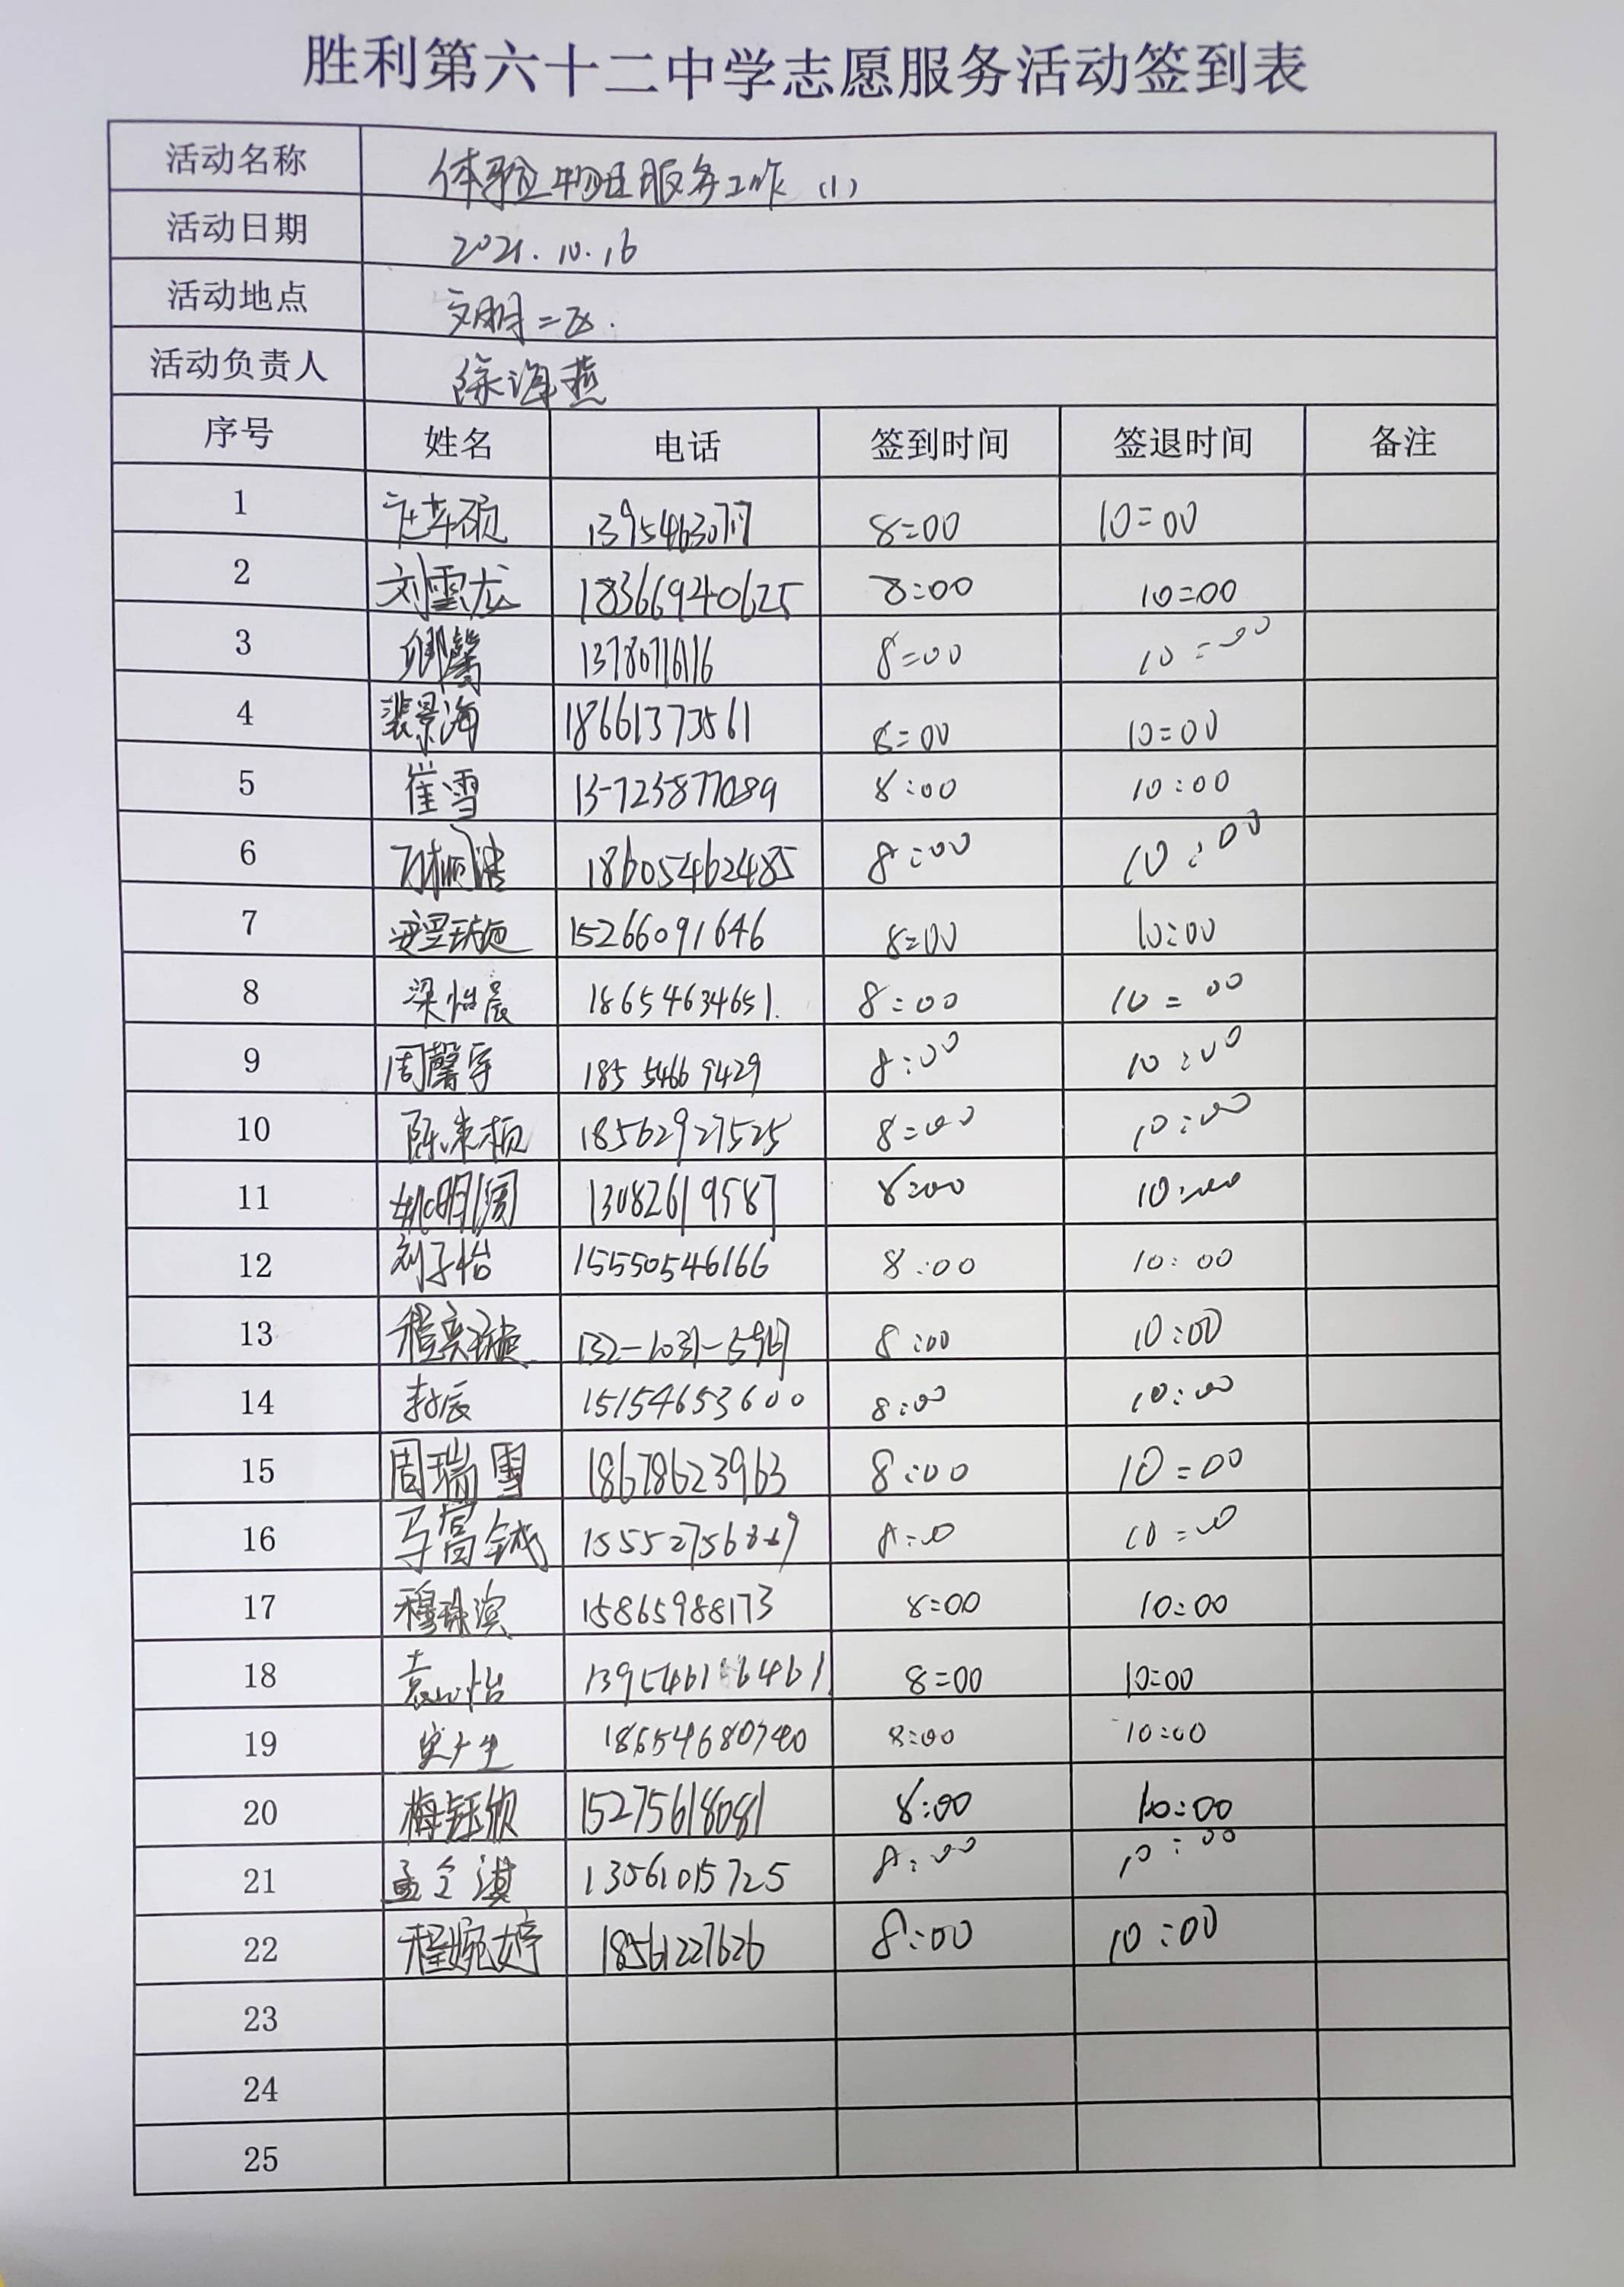 胜利第六十二中学志愿服务活动签到表
活动名称 体验物业服务工作（1）
活动日期 2021.10.16
活动地点 文明二区.
活动负责人 徐海燕
序号 姓名 电话 签到时间 签退时间 备注
1 8=00 10=00
2 刘雲龙 18366940625 8:00 10=00
3 馨 13780716116 8=00 10=00
4 裴景海 18661373561 8=00 10=00
5 崔雪 13-723877089 8:00 10:00
6 18605462485 8:00 10:00
7 15266091646 8=00 10:00
8 梁怡晨 18654634651. 8=00 10=00
9 周馨宇 185 5466 9429 8:00 10:00
10 18562927525 8=00 10:00
11 姚明润 13082619587 8:00 10:00
12 刘子怡 15550546166 8:00 10:00
13 程奕璇 8:00 10:00
14 李辰 15154653600 8:00 10:00
15 周瑞雪 18678623963 8:00 10=00
16 8=0 10=0
17 穆珠滨 15865988173 8=00 10:00
18 袁心怡 8=00 10=00
19 8:00 10:00
20 梅钰欣 15275618081 8:00 10:00
21 孟令淇 13061015725 8:00 10:00
22 程婉婷 18561227626 8:00 10:00
23
24
25